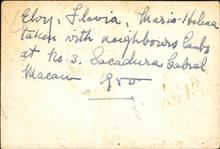 Elvy, Flavia, Maria-Helena
taken with neighbours
at No 3. Sacadura Cabral
Macau 1950